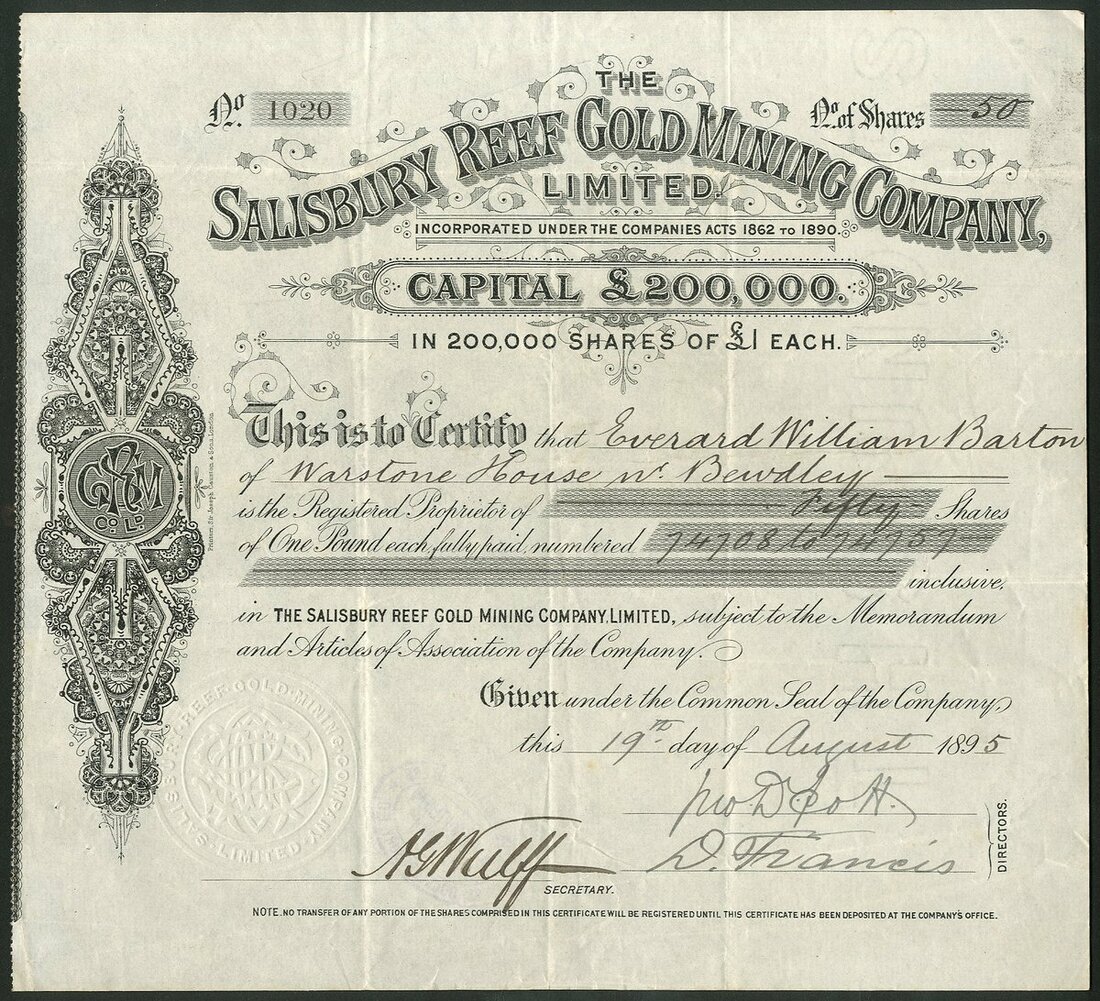 No. 1020
THE
SALISBURY REEF GOLD MINING COMPANY,
LIMITED.
No. of Shares 50
INCORPORATED UNDER THE COMPANIES ACTS 1862 TO 1890.
CAPITAL £200,000.
IN 200,000 SHARES OF £1 EACH.
This is to Certify that Everard William Barton
of Warstone House nr. Bewdley
is the Registered Proprietor of Fifty Shares
of One Pound each, fully paid, numbered 74708 to 74757
inclusive,
in THE SALISBURY REEF GOLD MINING COMPANY, LIMITED, subject to the Memorandum
and Articles of Association of the Company.
Given under the Common Seal of the Company,
this 19th day of August 1895
D. Francis
DIRECTORS.
A G Wulff
SECRETARY.
NOTE. NO TRANSFER OF ANY PORTION OF THE SHARES COMPRISED IN THIS CERTIFICATE WILL BE REGISTERED UNTIL THIS CERTIFICATE HAS BEEN DEPOSITED AT THE COMPANY'S OFFICE.
GRM
CO. LD.
SALISBURY REEF GOLD MINING COMPANY LIMITED